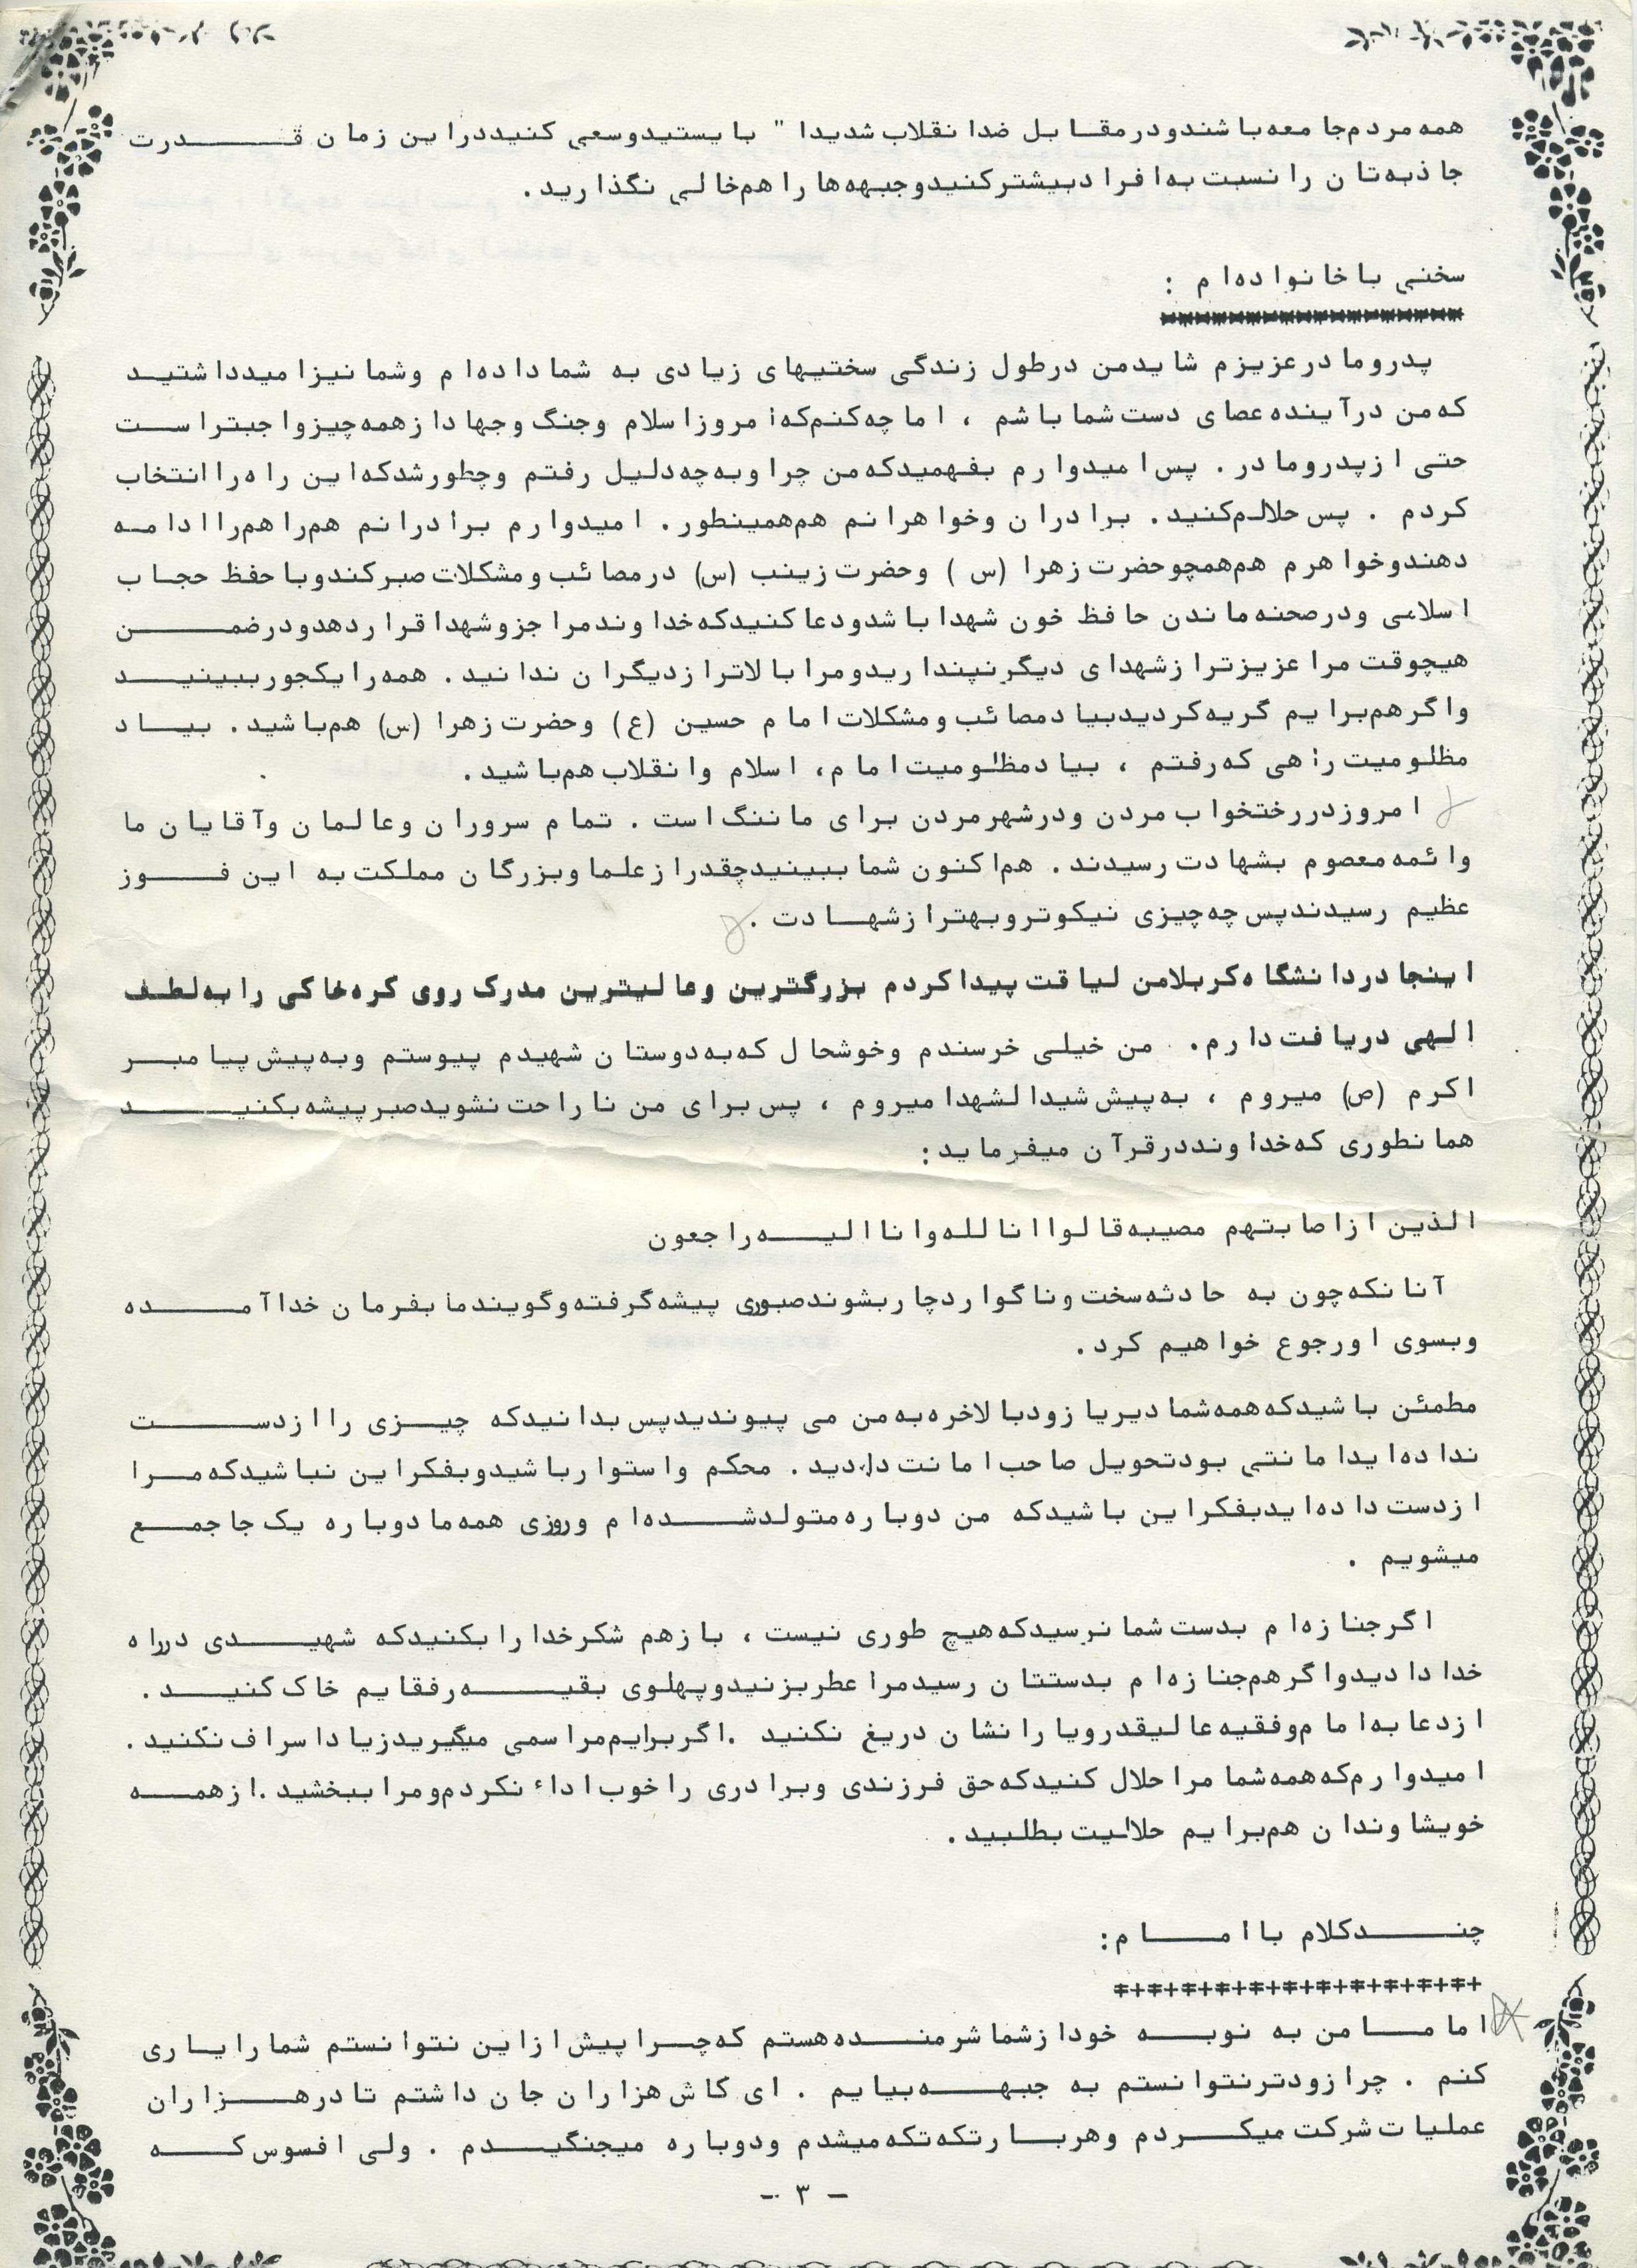 همه مردم جامعه باشند و در مقابل ضد انقلاب شدیدا " بایستید و سعی کنید در این زمان قدرت
جاذبه تان را نسبت به افراد بیشتر کنید و جبهه ها را هم خالی نگذارید .
سخنی با خانواده ام :
پدر و مادر عزیزم شاید من در طول زندگی سختیهای زیادی به شما داده ام و شما نیز امید داشتید
که من در آینده عصای دست شما باشم ، اما چه کنم که امروز اسلام و جنگ و جهاد از همه چیز واجبتر است
حتی از پدر و مادر . پس امیدوارم بفهمید که من چرا و به چه دلیل رفتم و چطور شد که این راه را انتخاب
کردم . پس حلالم کنید . برادران و خواهرانم هم همینطور . امیدوارم برادرانم هم راهم را ادامه
دهند و خواهرم هم همچو حضرت زهرا (س ) و حضرت زینب (س) در مصائب و مشکلات صبر کند و با حفظ حجاب
اسلامی و در صحنه ماندن حافظ خون شهدا باشد و دعا کنید که خداوند مرا جزو شهدا قرار دهد و در ضمن
هیچوقت مرا عزیزتر از شهدای دیگر نپندارید و مرا بالاتر از دیگران ندانید . همه را یکجور ببینید
و اگر هم برایم گریه کردید بیاد مصائب و مشکلات امام حسین (ع) و حضرت زهرا (س) هم باشید . بیاد
مظلومیت راهی که رفتم ، بیاد مظلومیت امام ، اسلام و انقلاب هم باشید .
امروز در رختخواب مردن و در شهر مردن برای ما ننگ است . تمام سروران و عالمان و آقایان ما
و ائمه معصوم بشهادت رسیدند . هم اکنون شما ببینید چقدر از علما و بزرگان مملکت به این فوز
عظیم رسیدند پس چه چیزی نیکوتر و بهتر از شهادت .
اینجا در دانشگاه کربلا من لیاقت پیدا کردم بزرگترین و عالیترین مدرک روی کره خاکی را به لطف
الهی دریافت دارم . من خیلی خرسندم و خوشحال که به دوستان شهیدم پیوستم و به پیش پیامبر
اکرم (ص) میروم ، به پیش شیدالشهدا میروم ، پس برای من ناراحت نشوید صبر پیشه بکنید
همانطوری که خداوند در قرآن میفرماید :
الذین ازا صابتهم مصیبه قالوا انا لله و انا الیه راجعون
آنانکه چون به حادثه سخت و ناگوار دچار بشوند صبوری پیشه گرفته و گویند ما بفرمان خدا آمده
و بسوی او رجوع خواهیم کرد .
مطمئن باشید که همه شما دیر یا زود بالاخره به من می پیوندید پس بدانید که چیزی را از دست
نداده اید امانتی بود تحویل صاحب امانت دادید . محکم و استوار باشید و بفکر این نباشید که مرا
از دست داده اید بفکر این باشید که من دوباره متولد شده ام و روزی همه ما دوباره یک جا جمع
میشویم .
اگر جنازه ام بدست شما نرسید که هیچ طوری نیست ، بازهم شکر خدا را بکنید که شهیدی در راه
خدا دادید و اگر هم جنازه ام بدستتان رسید مرا عطر بزنید و پهلوی بقیه رفقایم خاک کنید .
از دعا به امام و فقیه عالیقدر و یارانشان دریغ نکنید . اگر برایم مراسمی میگیرید زیاد اسراف نکنید .
امیدوارم که همه شما مرا حلال کنید که حق فرزندی و برادری را خوب اداء نکردم و مرا ببخشید . از همه
خویشاوندان هم برایم حلالیت بطلبید .
چند کلام با امام :
+‡+‡+‡+‡+‡+‡+‡+‡+‡+‡+‡
اماما من به نوبه خود از شما شرمنده هستم که چرا پیش از این نتوانستم شما را یاری
کنم . چرا زودتر نتوانستم به جبهه بیایم . ای کاش هزاران جان داشتم تا در هزاران
عملیات شرکت میکردم و هر بار تکه تکه میشدم و دوباره میجنگیدم . ولی افسوس که
- ۳ -